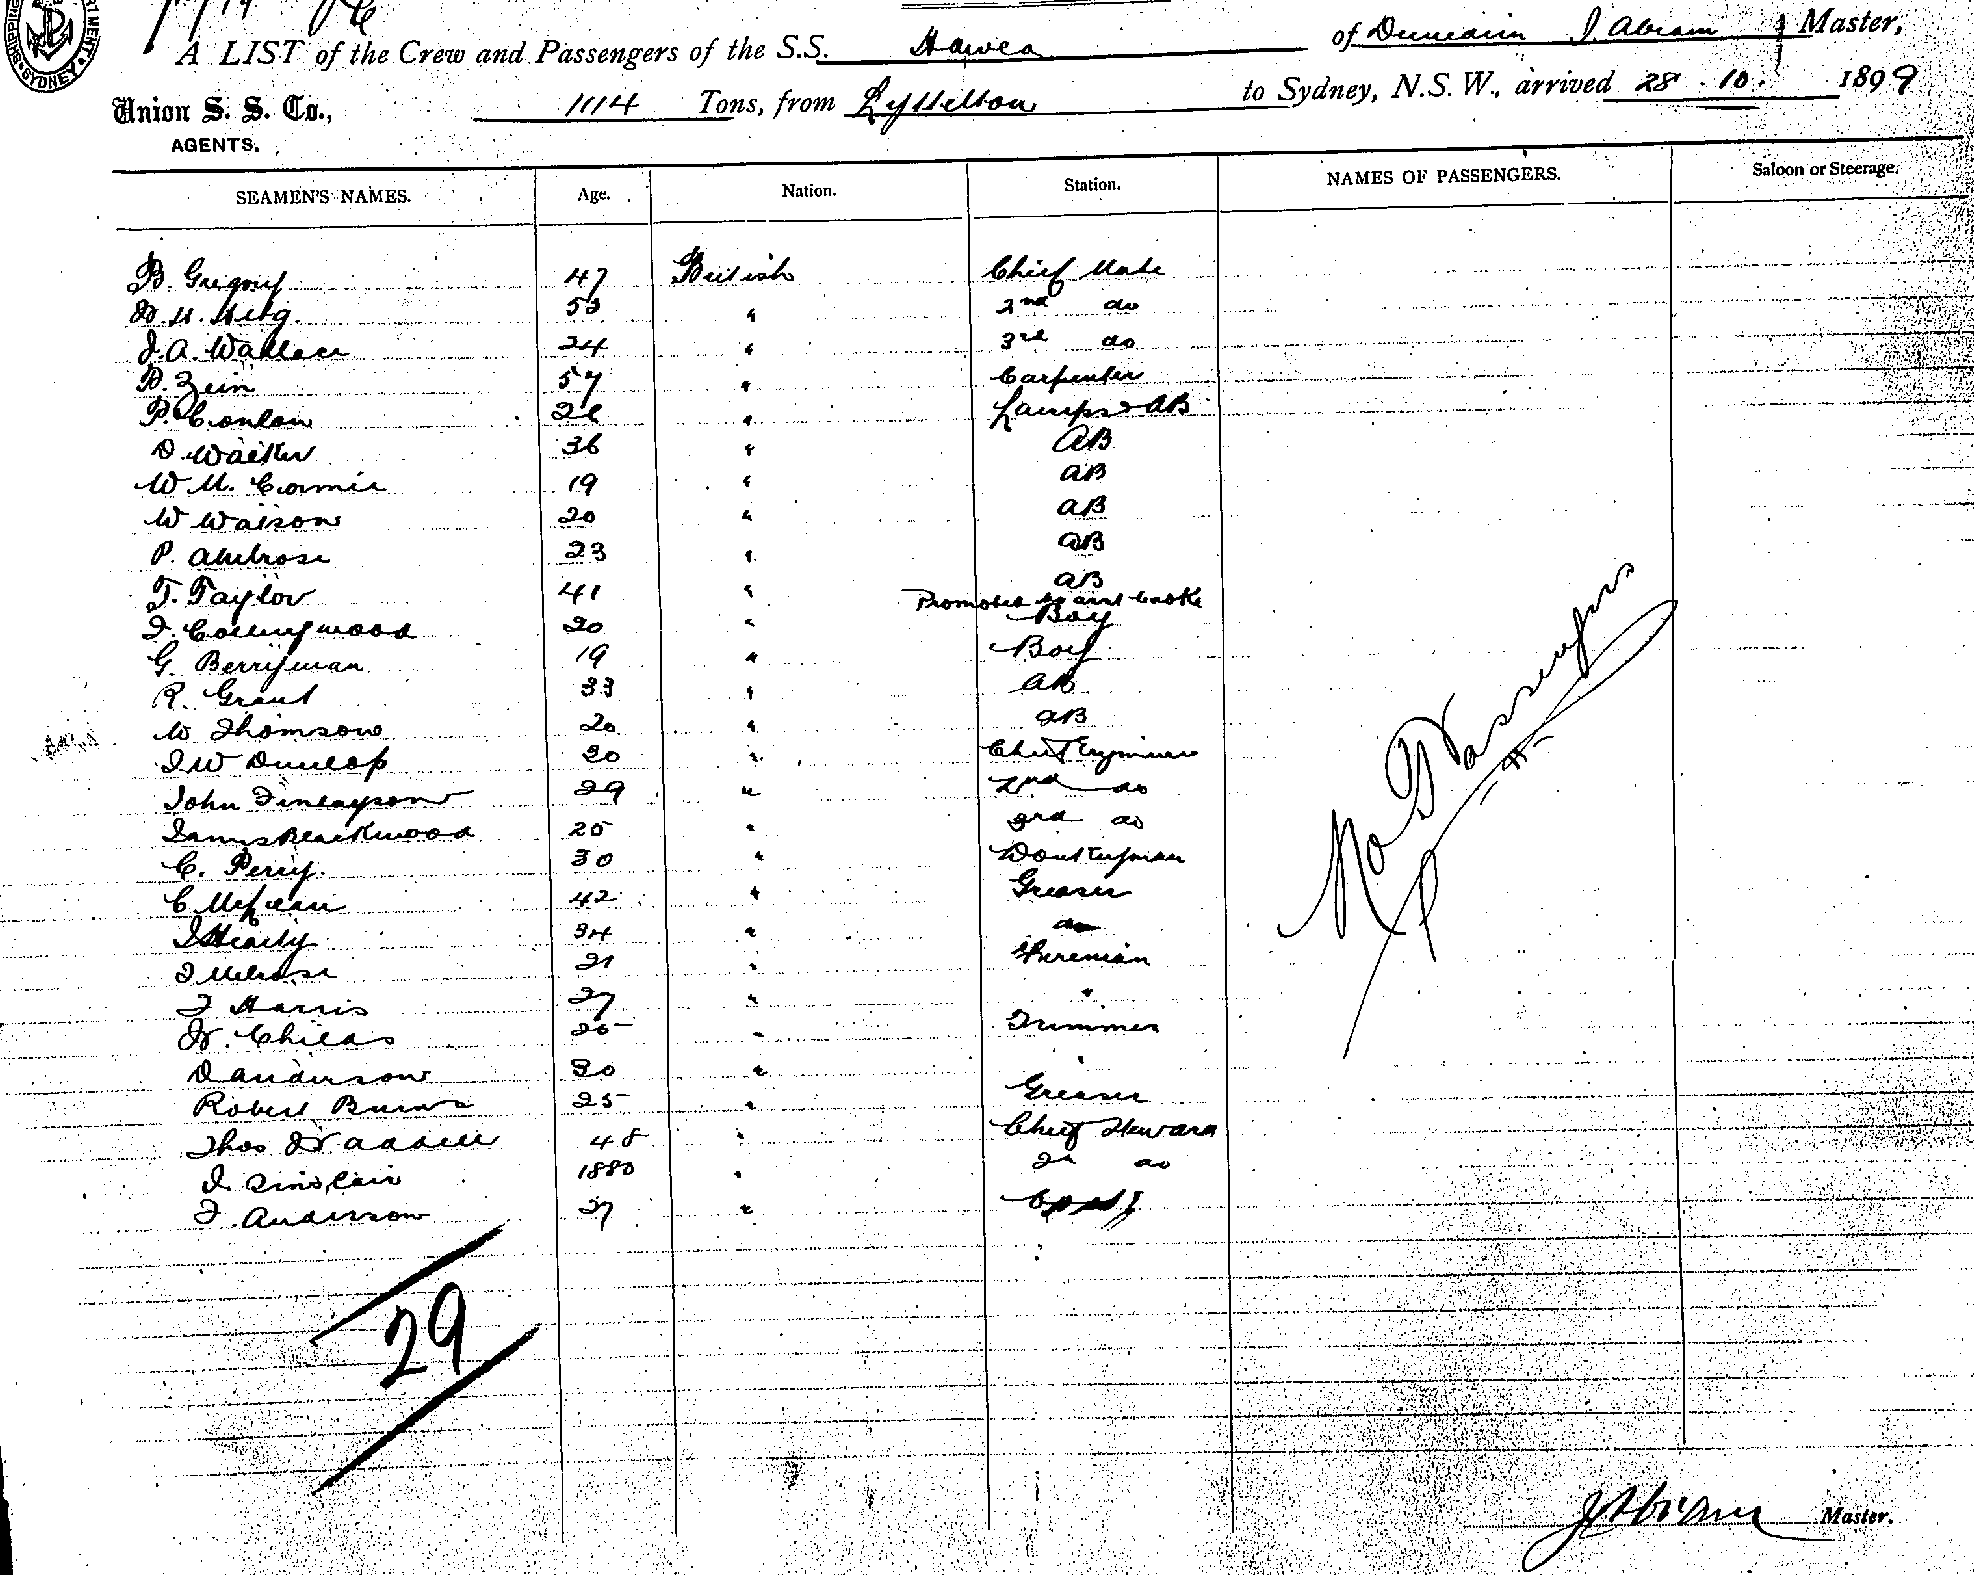 SHIPPING DEPARTMENT SYDNEY
A LIST of the Crew and Passengers of the S.S. Hawea of Dunedin J. Abram Master,
Union S. S. Co., 1114 Tons, from Lyttelton to Sydney, N.S.W., arrived 28 . 10 . 1899
AGENTS.
SEAMEN'S NAMES. Age. Nation. Station. NAMES OF PASSENGERS. Saloon or Steerage.
B. Gregory 47 British Chief Mate
53 " 2nd do
J. A. Wallace 24 " 3rd do
57 " Carpenter
P. Conlan " Lamps & AB
D. Walker 36 " AB
W M. Cormie 19 " AB
W Watson 20 " AB
P. Ambrose 23 " AB
T. Taylor 41 " AB
Promoted
J. Collingwood 20 " Boy
G. Berryman 19 " Boy
R. Grant 33 " AB
W Thomson 20 " AB
J W Dunlop 30 " Chief Engineer
John Finlayson 29 " 2nd do
James Blackwood 25 " 3rd do
C. Perry 30 " Donkeyman
C McLean 42 " Greaser
J Hearly 34 " do
J Melrose 21 " Fireman
J Harris 27 " "
W. Childs 25 " Trimmer
D Anderson 30 "
Robert Burns 25 " Greaser
Thos Waddell 48 " Chief Steward
J. Sinclair 1880 " 2n do
J. Anderson 27 "
No Passengers
29
J Abram Master.